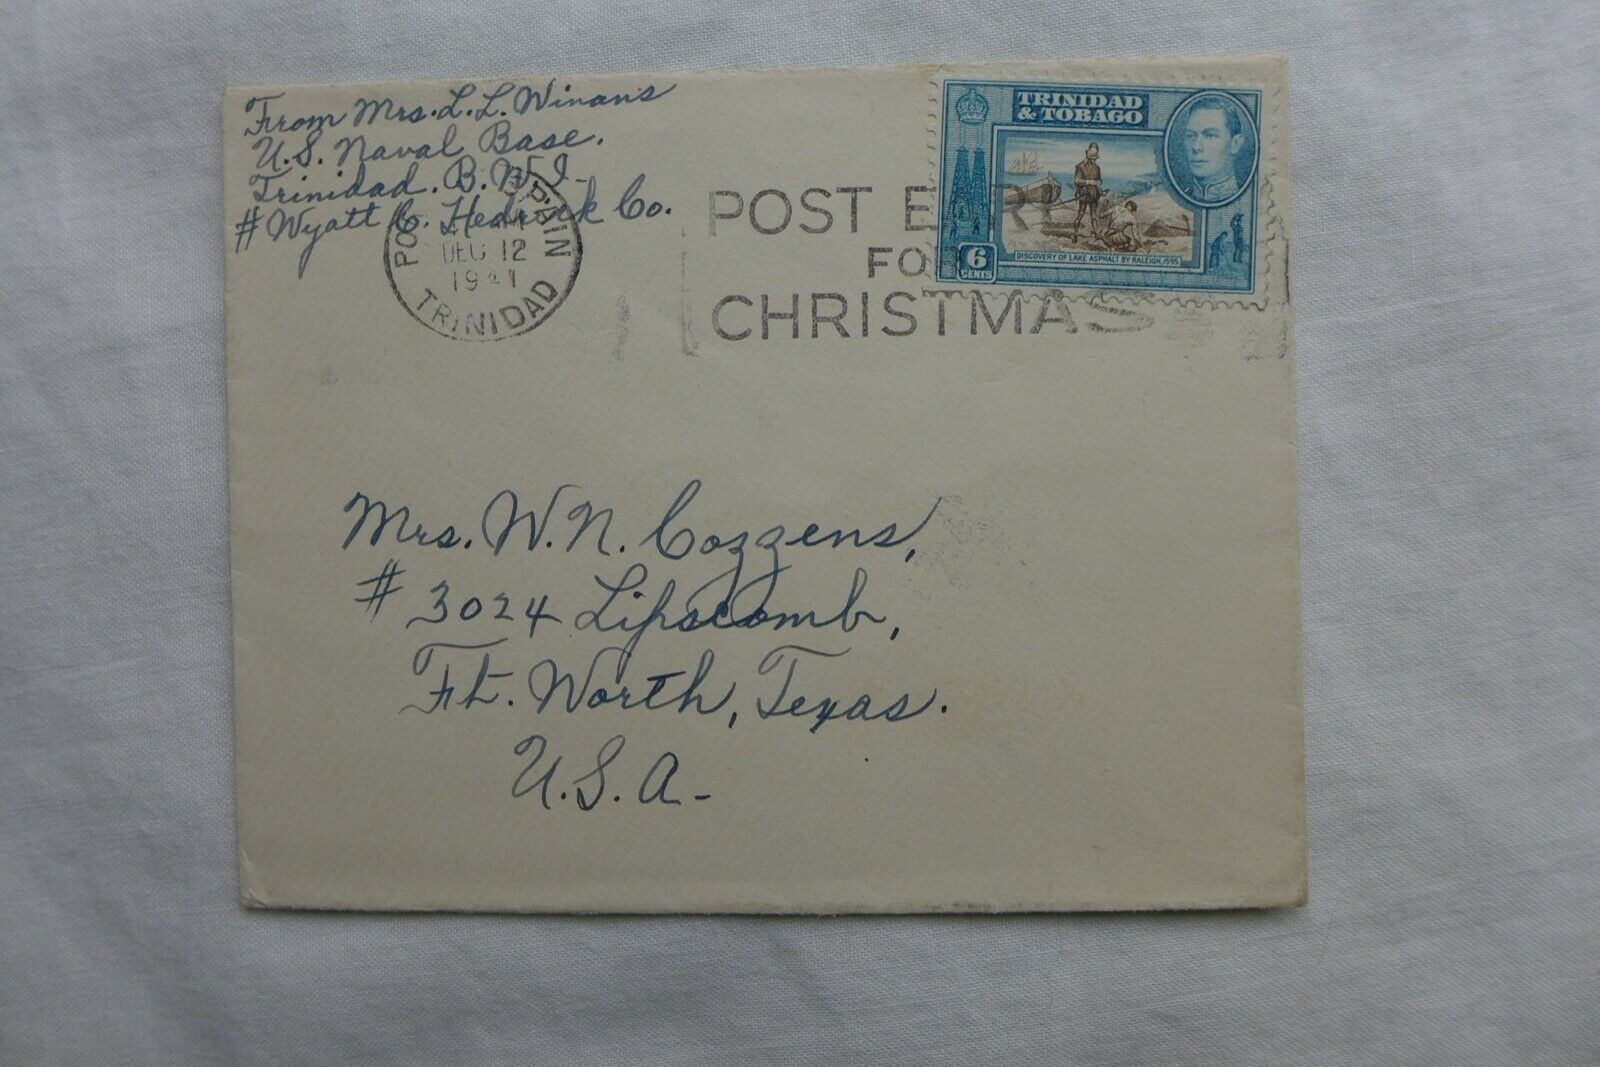 From Mrs. L. L. Winans
U.S. Naval Base.
Trinidad. B.W.I-
# Wyatt C. Hedrick Co.
DEC 12
1941
TRINIDAD
POST EARLY
FOR
CHRISTMAS
TRINIDAD
& TOBAGO
6
CENTS
DISCOVERY OF LAKE ASPHALT BY RALEIGH, 1595
Mrs. W. N. Cozzens,
# 3024 Lipscomb,
Ft. Worth, Texas.
U.S.A-